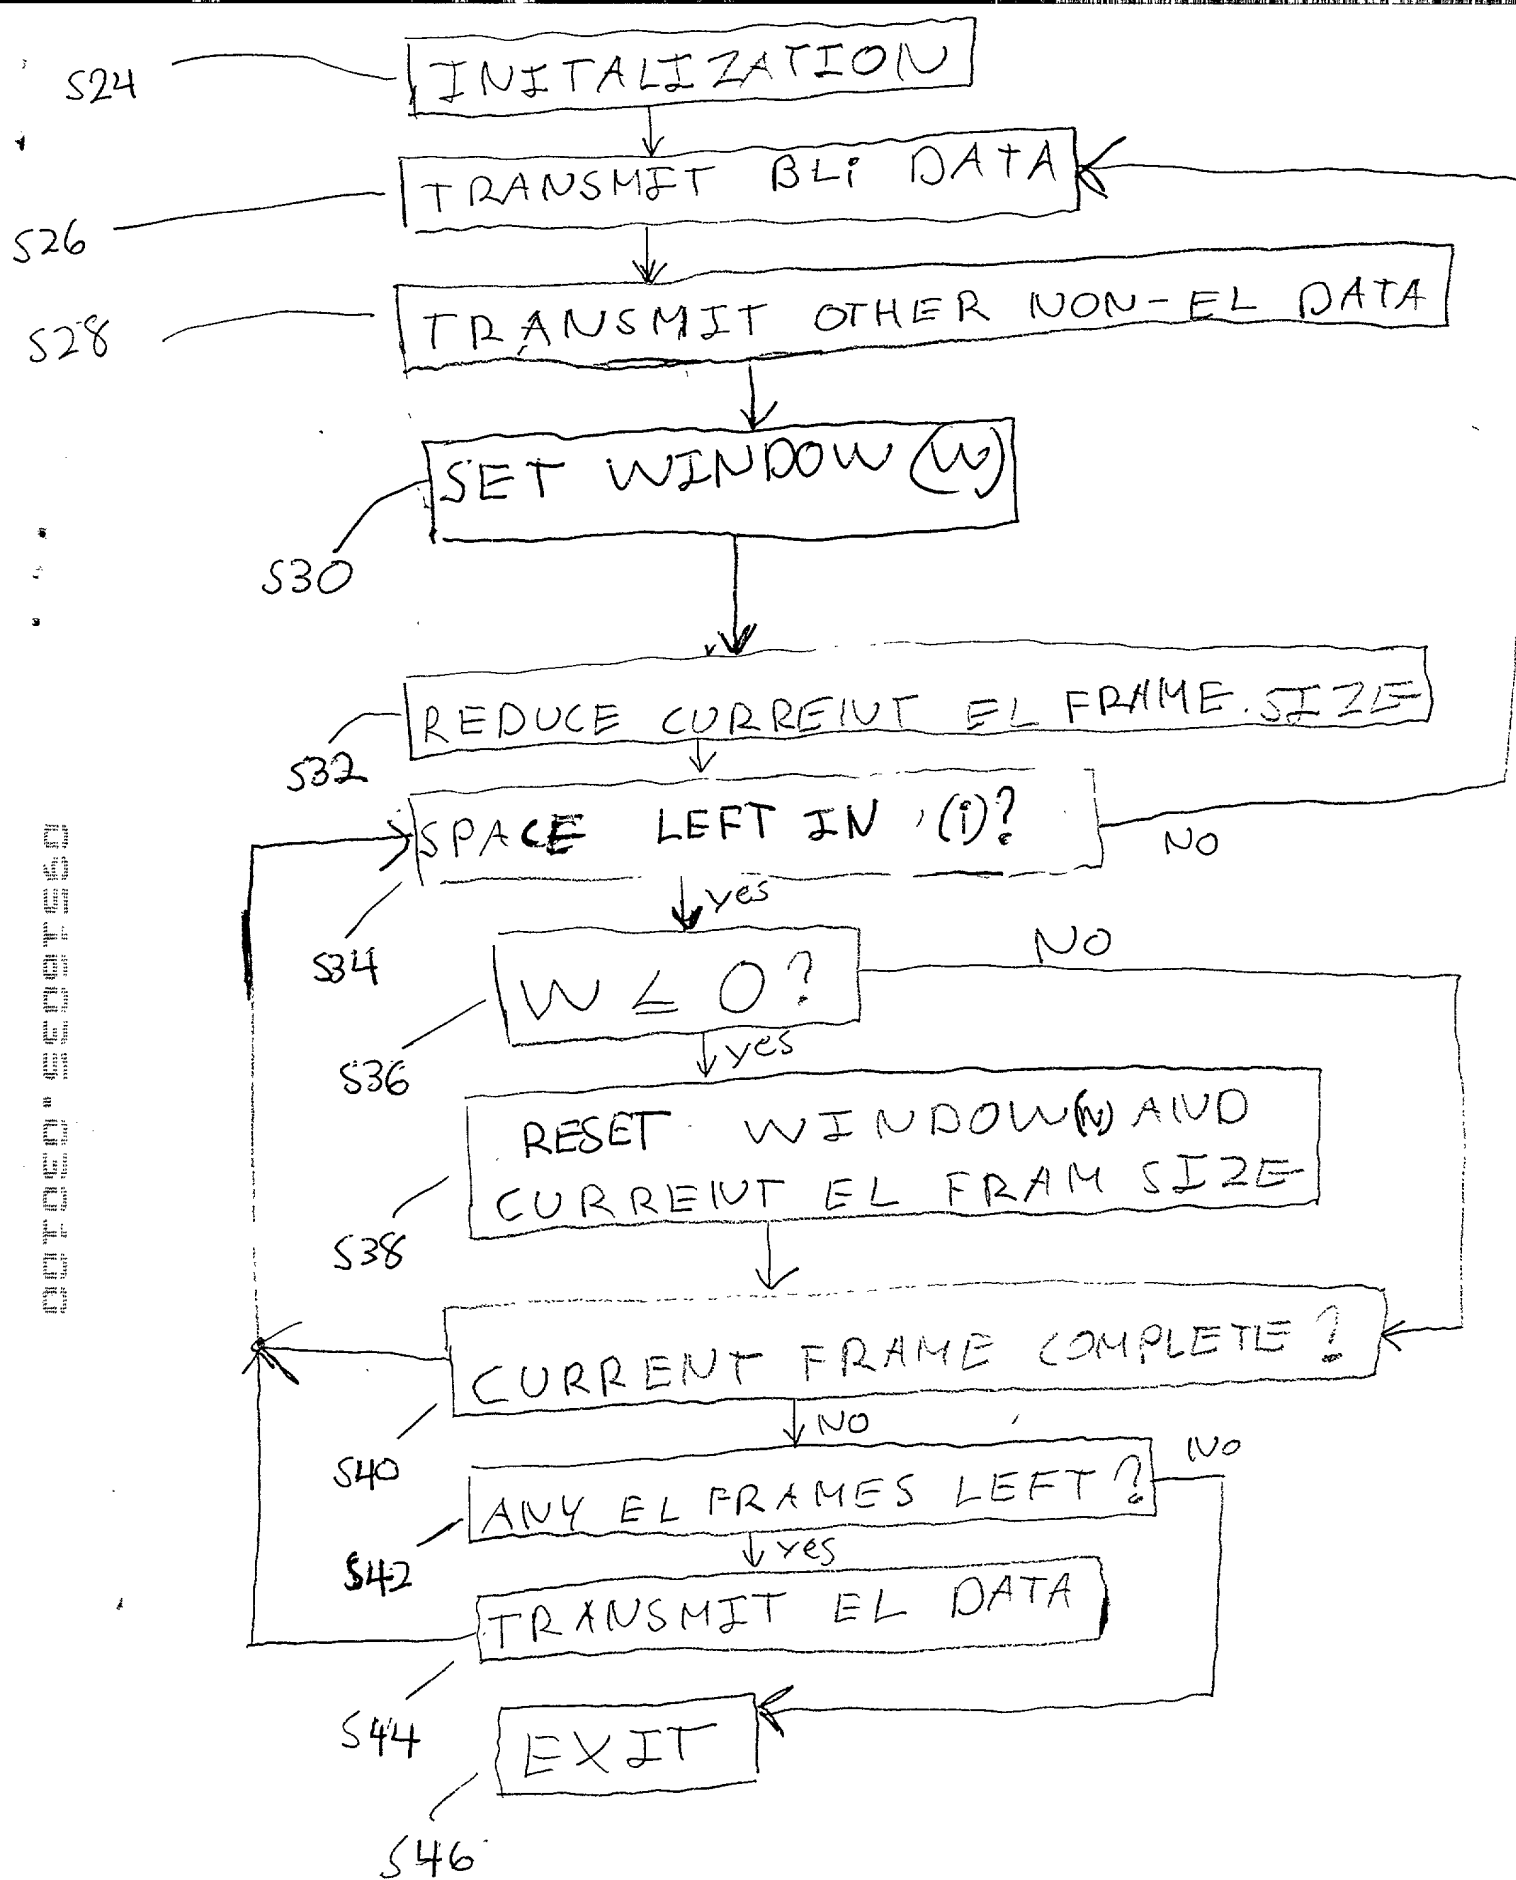 S24
INITALIZATION
TRANSMIT BLi DATA
S26
TRANSMIT OTHER NON-EL DATA
S28
SET WINDOW (W)
S30
REDUCE CURRENT EL FRAME SIZE
S32
SPACE LEFT IN (i)?
NO
yes
S34
NO
W ≤ 0?
S36
yes
RESET WINDOW(W) AND
CURRENT EL FRAM SIZE
S38
CURRENT FRAME COMPLETE?
S40
NO
NO
ANY EL FRAMES LEFT?
S42
yes
TRANSMIT EL DATA
S44
EXIT
S46